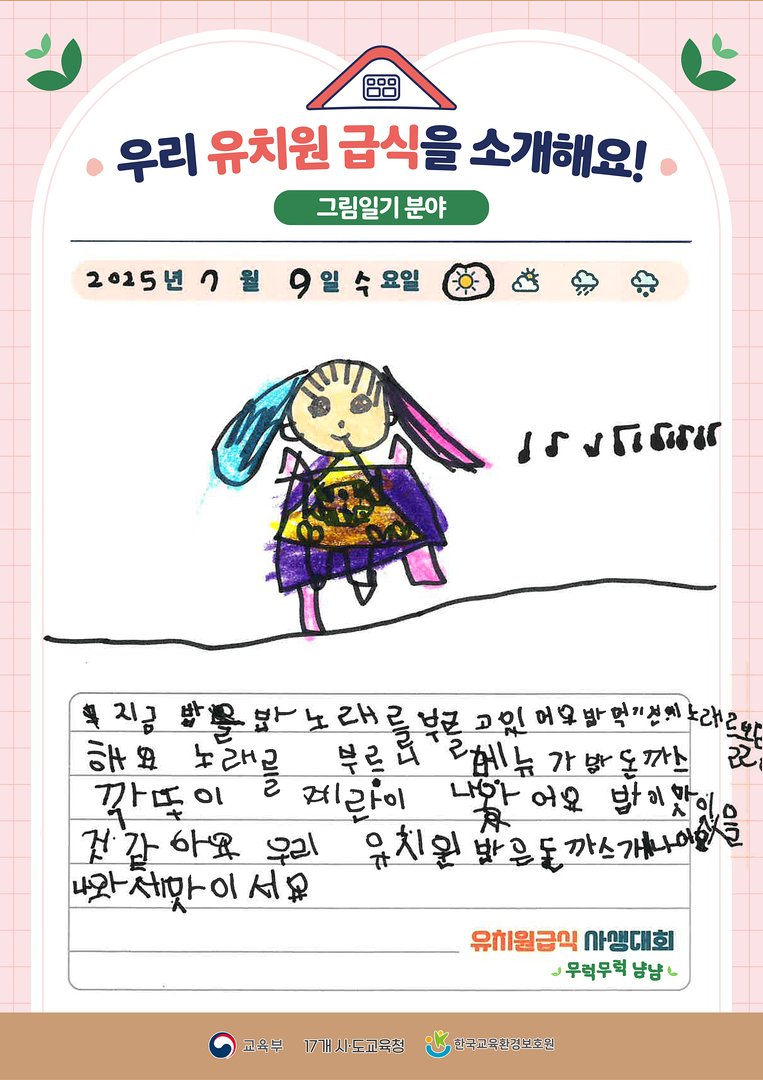 우리 유치원 급식을 소개해요!
그림일기 분야
2025년 7월 9일 수요일
지금 밥 노래를 부르고 있어요 밥 먹기전에 노래를
해요 노래를 부르니 메뉴가 밥 돈까스
깍뚜이 계란이 나와어요 밥이 맛있을
것 같아요 우리 유치원 밥은 돌까스개나어요
나와세맛이서요
유치원급식 사생대회
무럭무럭 냠냠
교육부 17개 시·도교육청 한국교육환경보호원